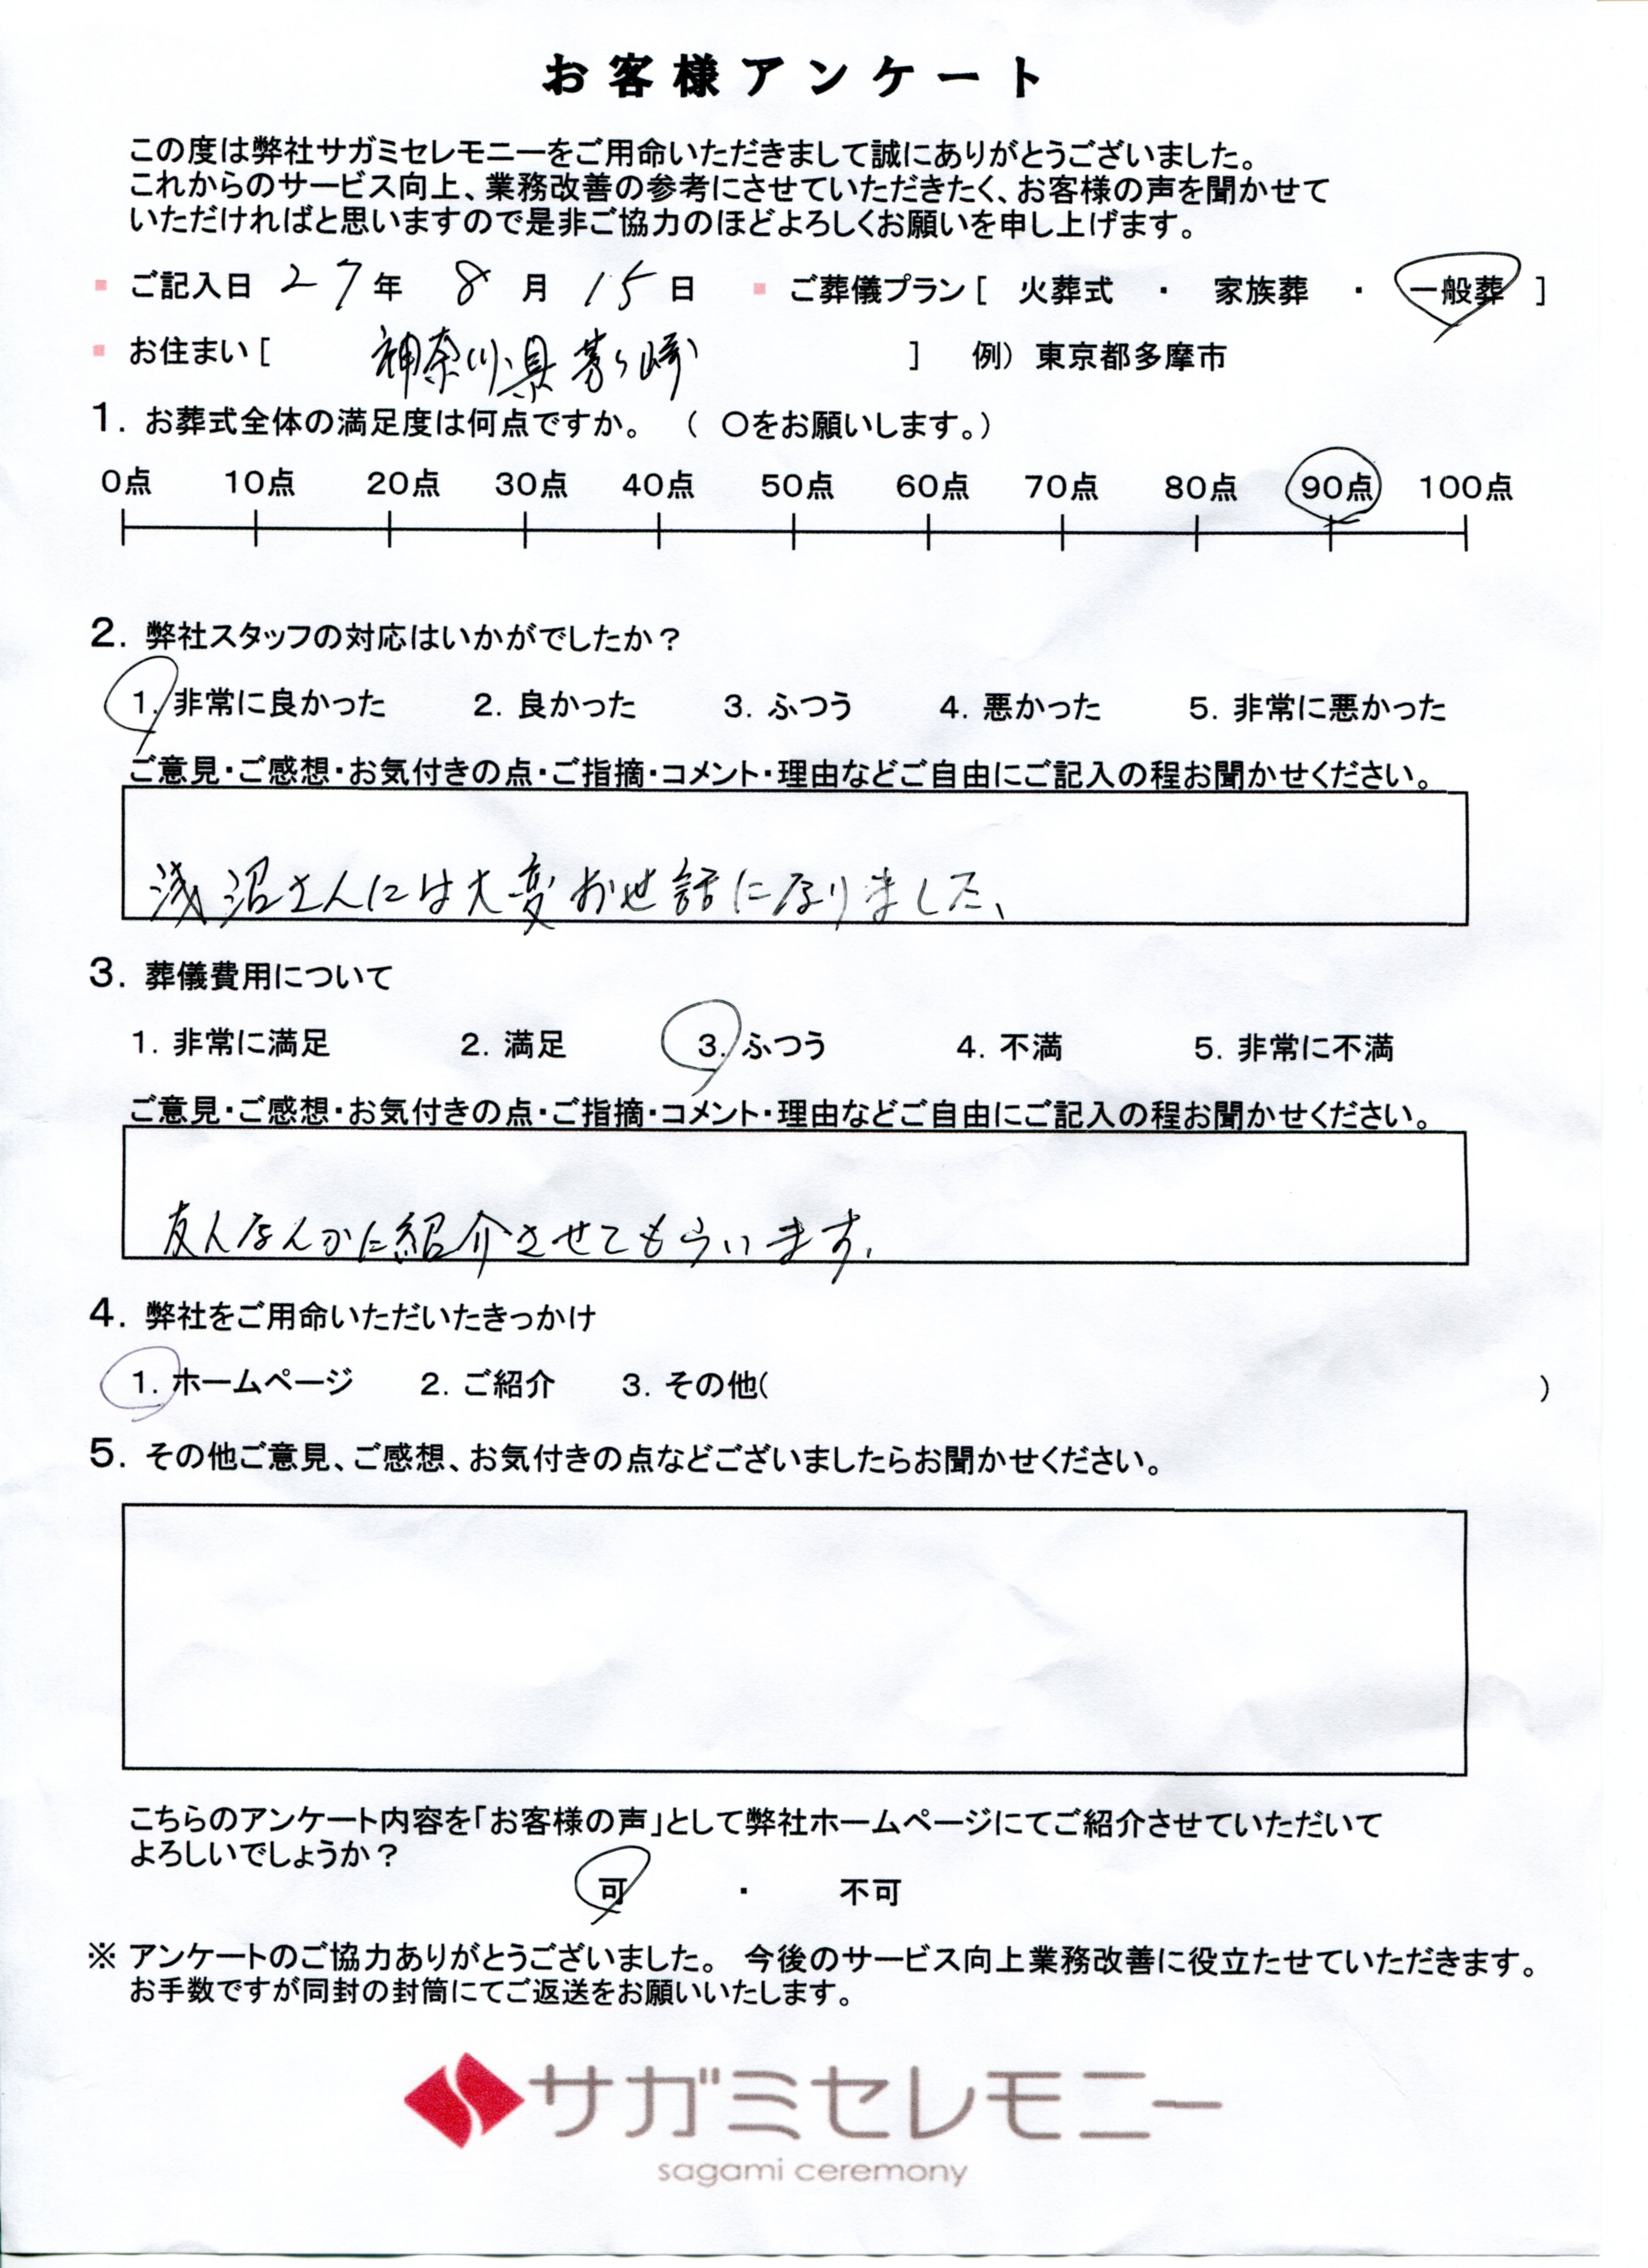 お客様アンケート
この度は弊社サガミセレモニーをご用命いただきまして誠にありがとうございました。
これからのサービス向上、業務改善の参考にさせていただきたく、お客様の声を聞かせて
いただければと思いますので是非ご協力のほどよろしくお願いを申し上げます。
ご記入日 27年 8月 15日 ご葬儀プラン [ 火葬式 ・ 家族葬 ・ 一般葬 ]
お住まい [ 神奈川県茅ヶ崎 ] 例） 東京都多摩市
1. お葬式全体の満足度は何点ですか。 （ 〇をお願いします。）
0点 10点 20点 30点 40点 50点 60点 70点 80点 90点 100点
2. 弊社スタッフの対応はいかがでしたか？
1. 非常に良かった 2. 良かった 3. ふつう 4. 悪かった 5. 非常に悪かった
ご意見・ご感想・お気付きの点・ご指摘・コメント・理由などご自由にご記入の程お聞かせください。
浅沼さんには大変お世話になりました、
3. 葬儀費用について
1. 非常に満足 2. 満足 3. ふつう 4. 不満 5. 非常に不満
ご意見・ご感想・お気付きの点・ご指摘・コメント・理由などご自由にご記入の程お聞かせください。
友人なんかに紹介させてもらいます。
4. 弊社をご用命いただいたきっかけ
1. ホームページ 2. ご紹介 3. その他( )
5. その他ご意見、ご感想、お気付きの点などございましたらお聞かせください。
こちらのアンケート内容を「お客様の声」として弊社ホームページにてご紹介させていただいて
よろしいでしょうか？
可 ・ 不可
※ アンケートのご協力ありがとうございました。 今後のサービス向上業務改善に役立たせていただきます。
お手数ですが同封の封筒にてご返送をお願いいたします。
サガミセレモニー
sagami ceremony